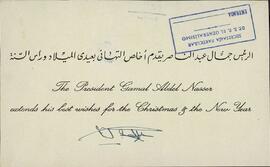 الرئيس جمال عبد الناصر يقدم أخلص التهاني بعيدى الميلاد ورأس السنة
The President Gamal Abdel Nasser
extends his best wishes for the Christmas & the New Year
SECRETARIA PARTICULAR
DE S. E. EL GENERALISIMO
ENTRADA